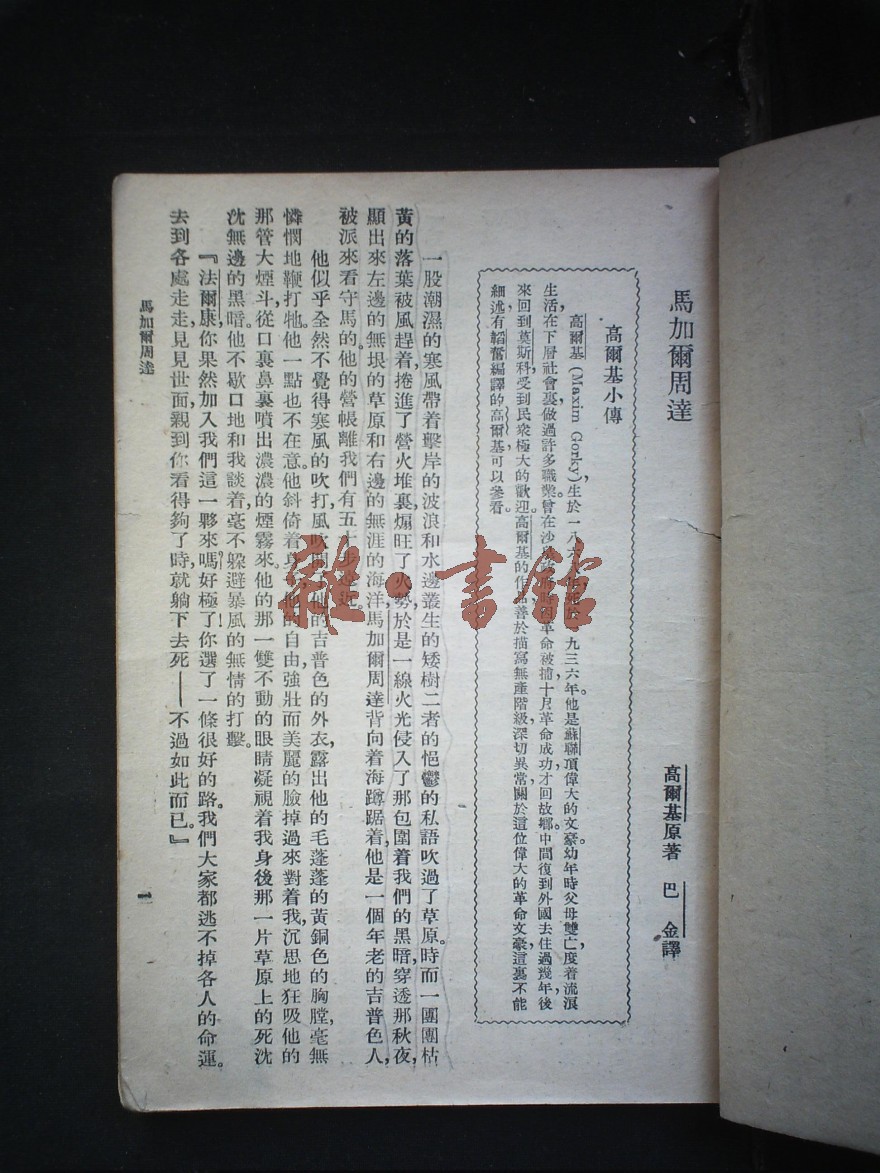 馬加爾周達
高爾基原著　巴　金譯
高爾基小傳
高爾基(Maxim Gorky)，生於一八六 九三六年。他是蘇聯頂偉大的文豪，幼年時父母雙亡，度着流浪
生活，在下層社會裏，做過許多職業。曾在沙 革命被捕，十月革命成功，才回故鄉，中間復到外國去住過幾年，後
來回到莫斯科，受到民衆極大的歡迎。高爾基的作 善於描寫無產階級，深切異常，關於這位偉大的革命文豪，這裏不能
細述，有韜奮編譯的高爾基可以參看。
一股潮濕的寒風帶着擊岸的波浪和水邊叢生的矮樹二者的悒鬱的私語吹過了草原。時而一團團枯
黃的落葉被風趕着，捲進了營火堆裏，煽旺了火勢，於是一線火光侵入了那包圍着我們的黑暗，穿透那秋夜，
顯出來左邊的無垠的草原和右邊的無涯的海洋。馬加爾周達背向着海蹲踞着，他是一個年老的吉普色人，
被派來看守馬的。他的營帳離我們有五十步 近。
他似乎全然不覺得寒風的吹打，風吹開了他的吉普色的外衣，露出他的毛蓬蓬的黃銅色的胸膛，毫無
憐憫地鞭打牠。他一點也不在意。他斜倚着身 他的自由，強壯而美麗的臉掉過來對着我，沉思地狂吸他的
那管大煙斗，從口裏鼻裏噴出濃濃的煙霧來。他的那一雙不動的眼睛凝視着我身後那一片草原上的死沈
沈無邊的黑暗。他不歇口地和我談着，毫不躲避暴風的無情的打擊。
『法爾康，你果然加入我們這一夥來嗎？好極了！你選了一條很好的路。我們大家都逃不掉各人的命運。
去到各處走走，見見世面，親到你看得夠了時，就躺下去死——不過如此而已。』
馬加爾周達
一
雜·書館